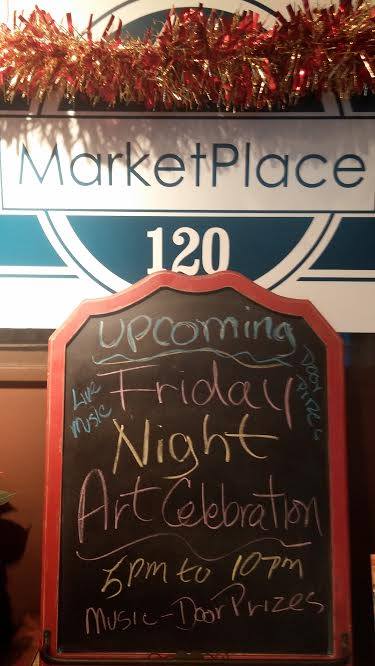 MarketPlace
120
upcoming
Live
Music
Door
Prizes
Friday
Night
Art Celebration
5pm to 10pm
Music - Door Prizes